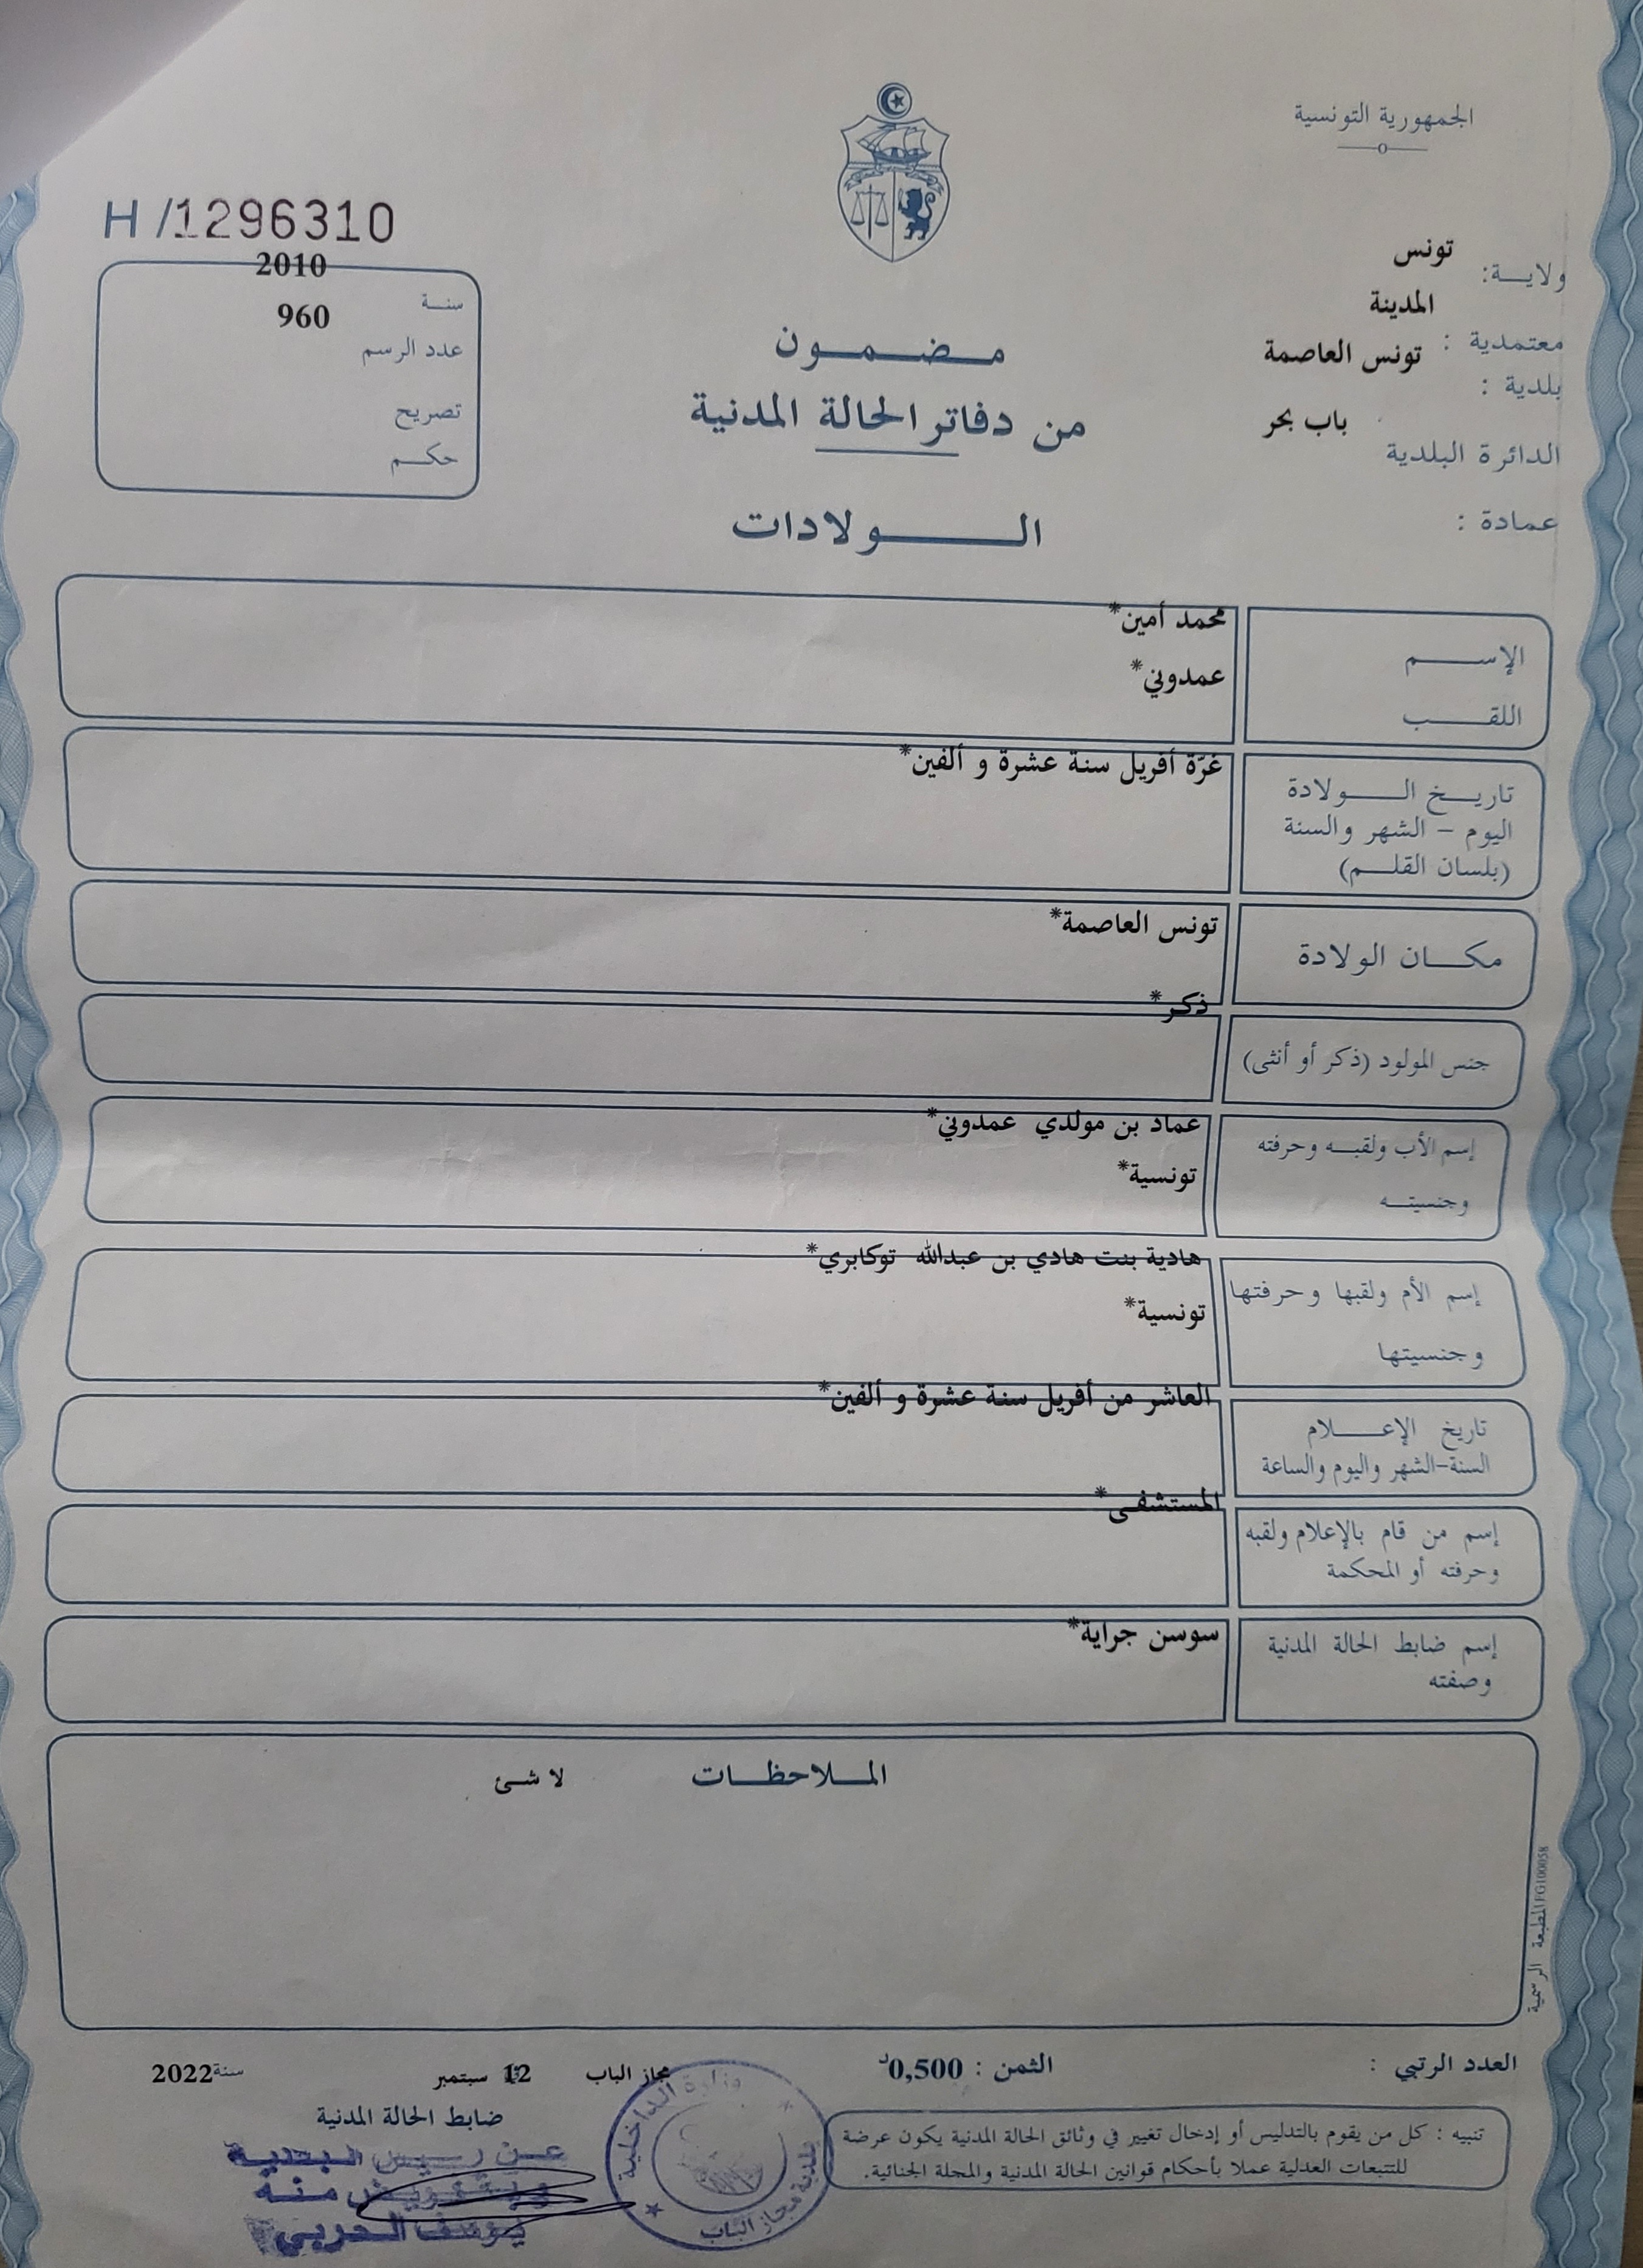 الجمهورية التونسية
H/1296310
ولايـة: تونس
معتمدية : المدينة
بلدية : تونس العاصمة
الدائرة البلدية باب بحر
عمادة :
سنـة 2010
عدد الرسم 960
تصريح
حكـم
مـضـمـون
من دفاتر الحالة المدنية
الـولادات
الإسـم محمد أمين*
اللقـب عمدوني*
تاريـخ الـولادة
اليوم - الشهر والسنة
(بلسان القلـم)
غرّة أفريل سنة عشرة و ألفين*
مكـان الولادة تونس العاصمة*
جنس المولود (ذكر أو أنثى) ذكر*
إسم الأب ولقبـه وحرفته عماد بن مولدي عمدوني*
وجنسيتـه تونسية*
إسم الأم ولقبها وحرفتها هادية بنت هادي بن عبدالله توكابري*
وجنسيتها تونسية*
تاريخ الإعـلام
السنة-الشهر واليوم والساعة
العاشر من أفريل سنة عشرة و ألفين*
إسم من قام بالإعلام ولقبه
وحرفته أو المحكمة
المستشفى*
إسم ضابط الحالة المدنية
وصفته
سوسن جراية*
المـلاحظـات لا شئ
المطبعة الرسمية FG100058
العدد الرتبي :
الثمن : 0,500د
مجاز الباب 12 سبتمبر سنة 2022
ضابط الحالة المدنية
عن رئيس البلدية
وبتفويض منه
يوسف العربي
وزارة الداخلية
بلدية مجاز الباب
تنبيه : كل من يقوم بالتدليس أو إدخال تغيير في وثائق الحالة المدنية يكون عرضة
للتتبعات العدلية عملا بأحكام قوانين الحالة المدنية والمجلة الجنائية.